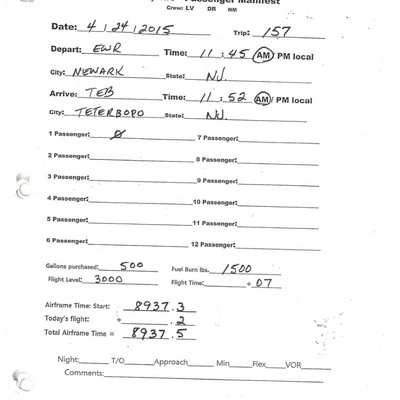 Passenger Manifest
Crew: LV DR NM
Date: 4 / 24 / 2015 Trip: 157
Depart: EWR Time: 11 : 45 AM / PM local
City: NEWARK State: NJ.
Arrive: TEB Time: 11 : 52 AM / PM local
City: TETERBORO State: NJ.
1 Passenger: 0 7 Passenger:
2 Passenger: 8 Passenger:
3 Passenger: 9 Passenger:
4 Passenger: 10 Passenger:
5 Passenger: 11 Passenger:
6 Passenger: 12 Passenger:
Gallons purchased: 500 Fuel Burn lbs. 1500
Flight Level: 3000 Flight Time: + 07
Airframe Time: Start: 8937.3
Today's flight: + .2
Total Airframe Time = 8937.5
Night: T/O Approach Min Flex VOR
Comments: